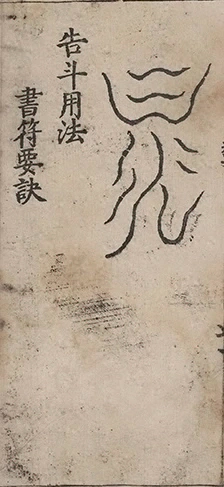 告斗用法
書符要訣